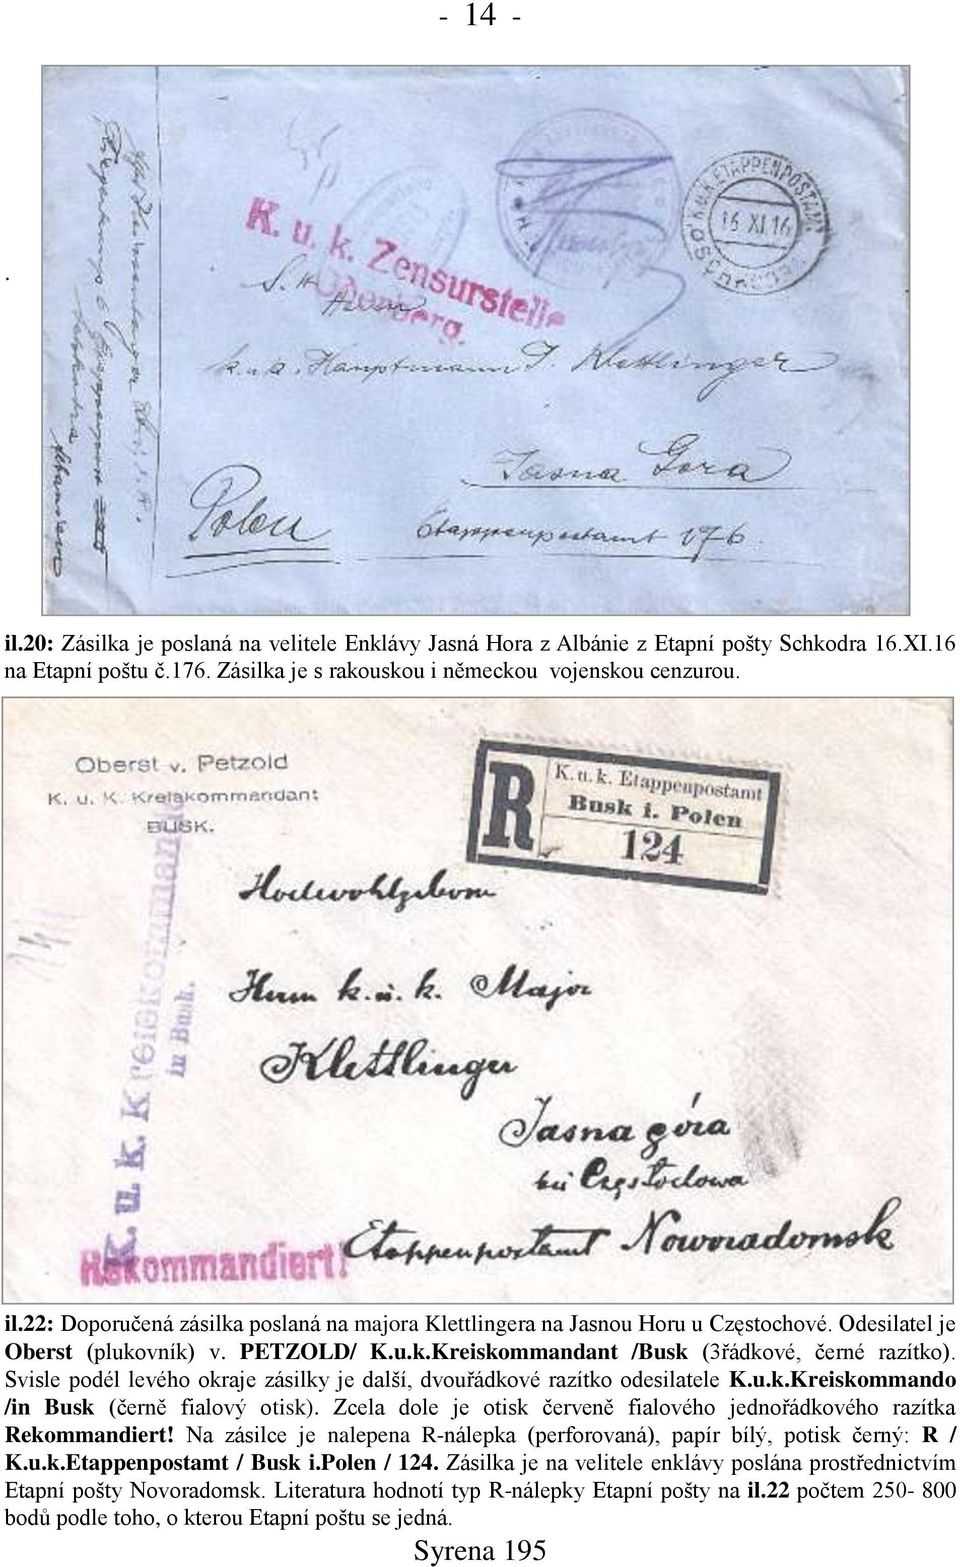 - 14 -
K. u. k. Zensurstelle
Oderberg.
K.u.K. ETAPPENPOSTAMT
16 XI.16
k.u.k. Hauptmann J. Klettlinger
Jasna Gora
Polen
Etappenpostamt 176.
il.20: Zásilka je poslaná na velitele Enklávy Jasná Hora z Albánie z Etapní pošty Schkodra 16.XI.16
na Etapní poštu č.176. Zásilka je s rakouskou i německou vojenskou cenzurou.
Oberst v. Petzold
K. u. K. Kreiskommandant
BUSK.
R
K. u. k. Etappenpostamt
Busk i. Polen
124
K. u. k. Kreiskommando
in Busk.
Hochwohlgeborn
Herrn k.u.k. Major
Klettlinger
Jasna góra
bei Częstochowa
Etappenpostamt Noworadomsk
Rekommandiert!
il.22: Doporučená zásilka poslaná na majora Klettlingera na Jasnou Horu u Częstochové. Odesilatel je
Oberst (plukovník) v. PETZOLD/ K.u.k.Kreiskommandant /Busk (3řádkové, černé razítko).
Svisle podél levého okraje zásilky je další, dvouřádkové razítko odesilatele K.u.k.Kreiskommando
/in Busk (černě fialový otisk). Zcela dole je otisk červeně fialového jednořádkového razítka
Rekommandiert! Na zásilce je nalepena R-nálepka (perforovaná), papír bílý, potisk černý: R /
K.u.k.Etappenpostamt / Busk i.Polen / 124. Zásilka je na velitele enklávy poslána prostřednictvím
Etapní pošty Novoradomsk. Literatura hodnotí typ R-nálepky Etapní pošty na il.22 počtem 250-800
bodů podle toho, o kterou Etapní poštu se jedná.
Syrena 195